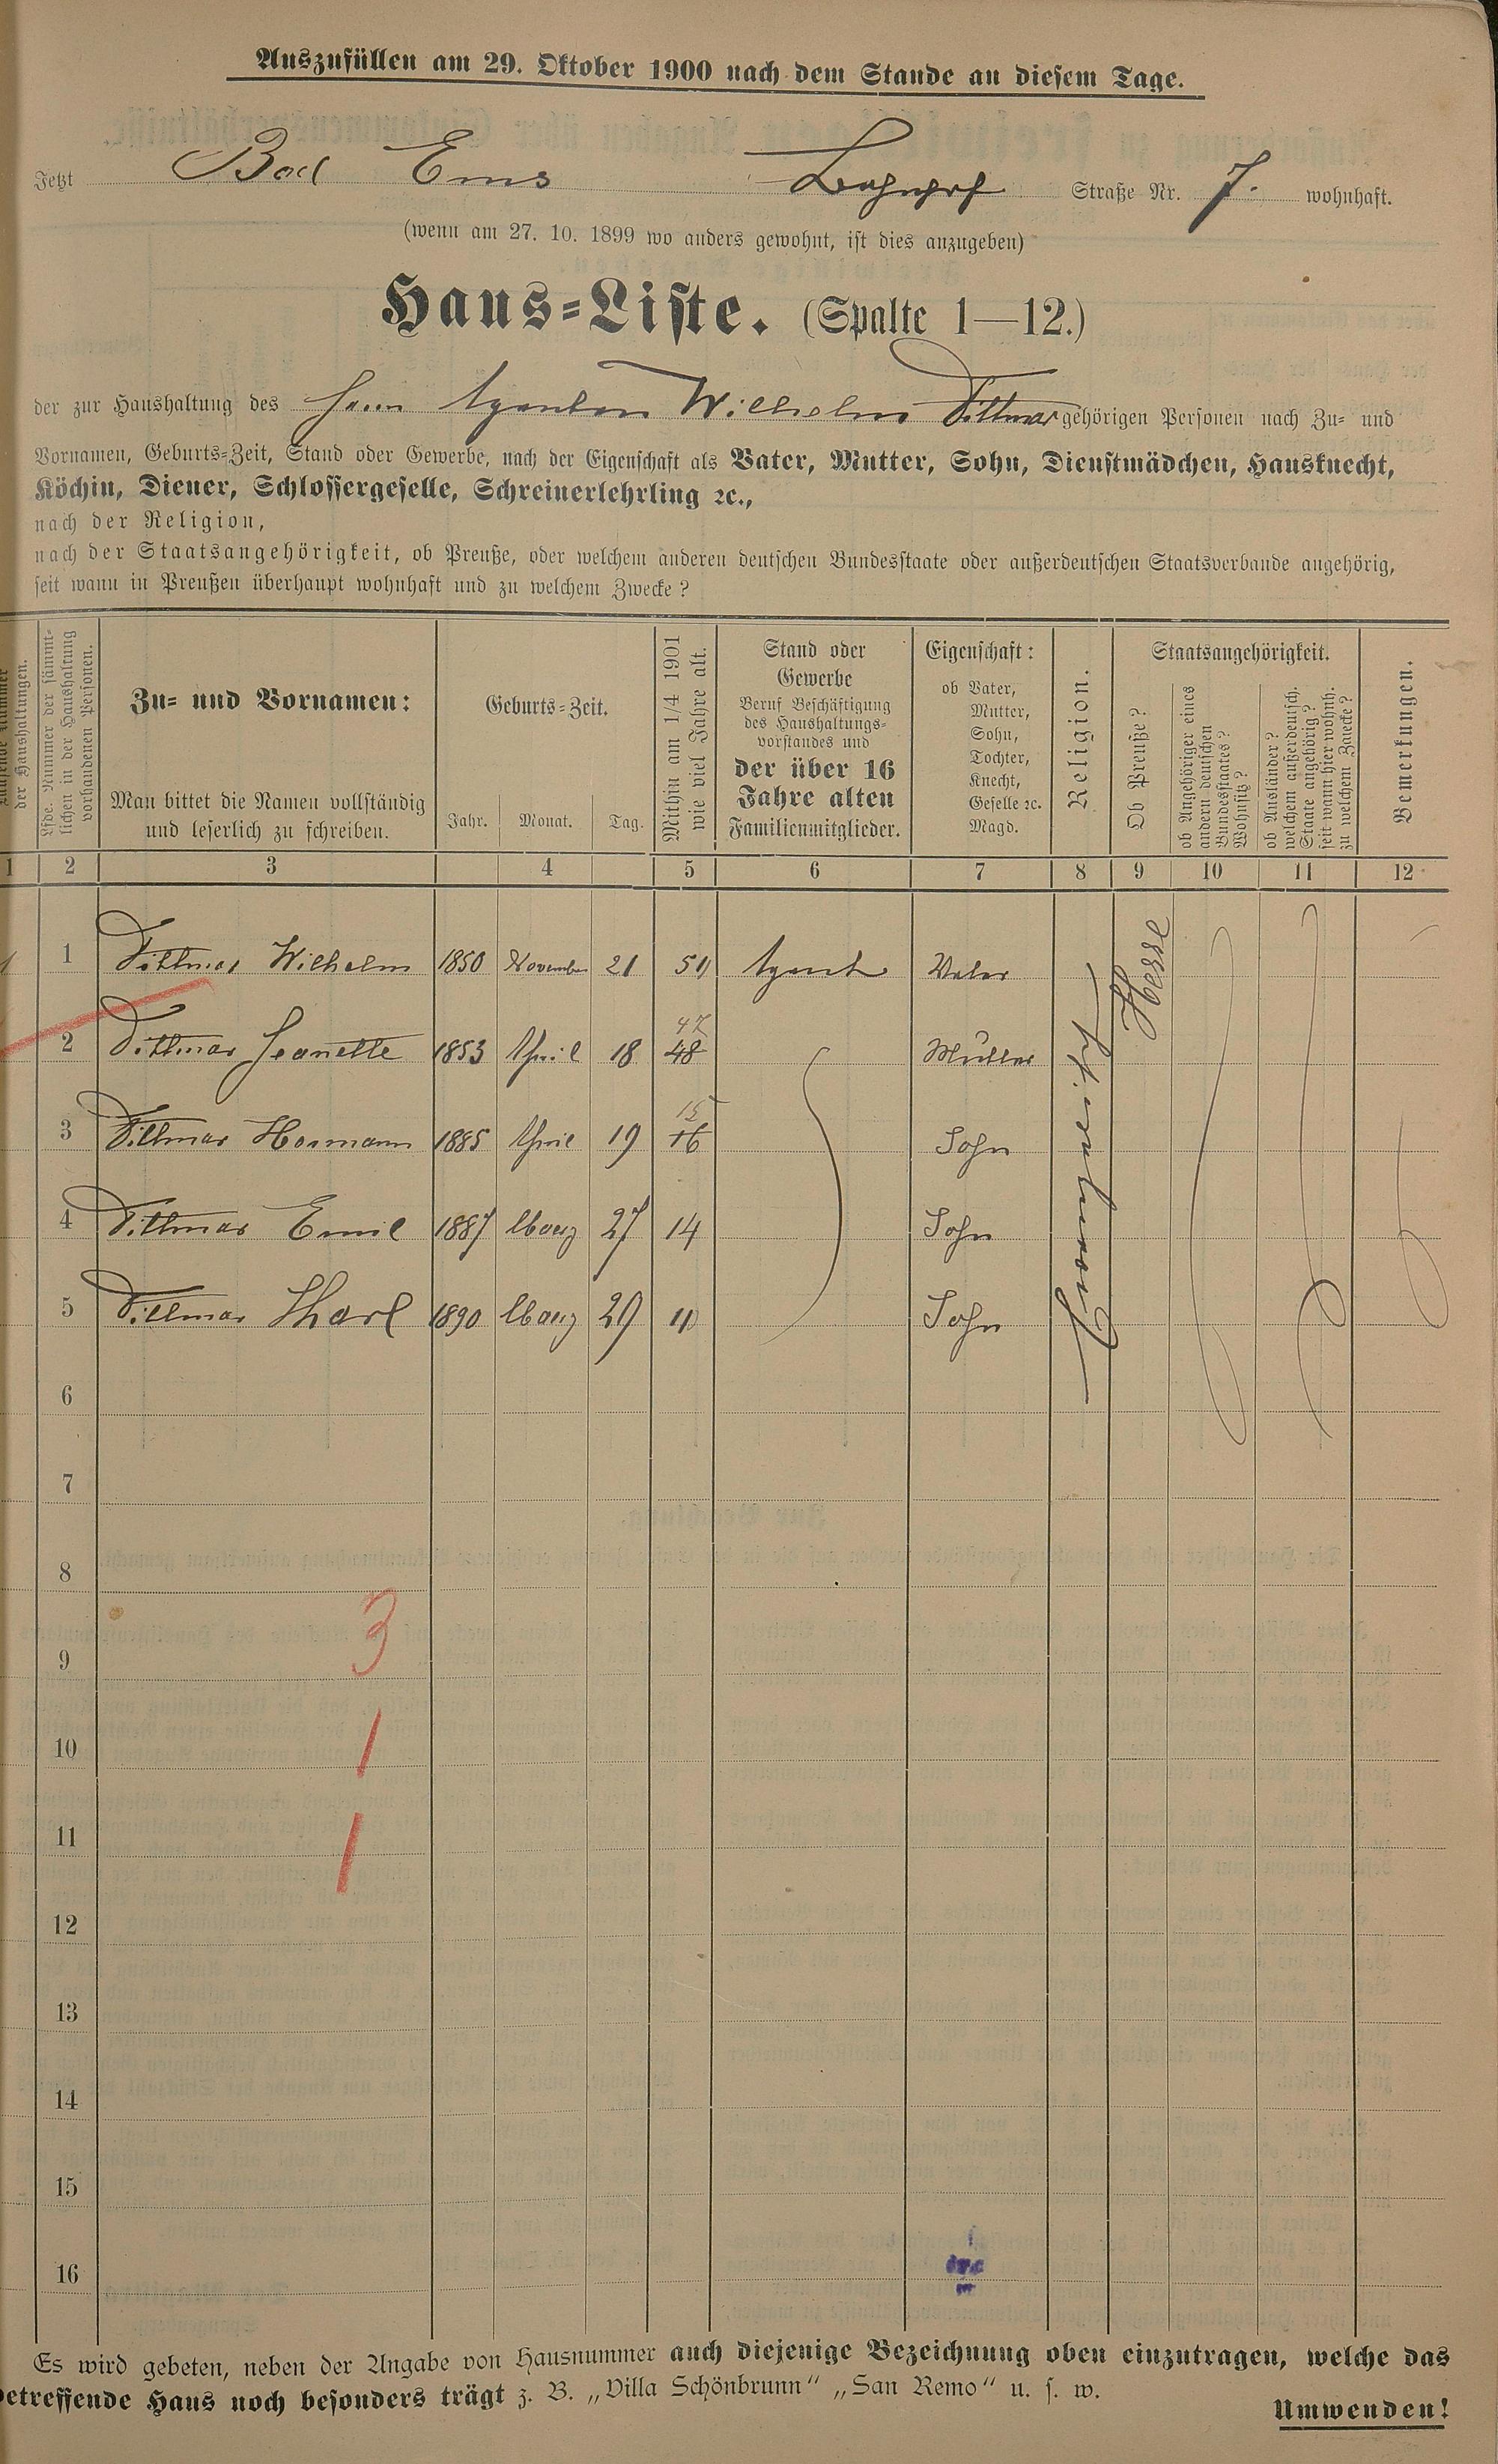 Auszufüllen am 29. Oktober 1900 nach dem Stande an diesem Tage.
Jetzt Bad Ems Bahnhof Straße Nr. 7. wohnhaft.
(wenn am 27. 10. 1899 wo anders gewohnt, ist dies anzugeben)
Haus=Liste. (Spalte 1—12.)
der zur Haushaltung des Herrn Agenten Wilhelm Dittmar gehörigen Personen nach Zu= und
Vornamen, Geburts=Zeit, Stand oder Gewerbe, nach der Eigenschaft als Vater, Mutter, Sohn, Dienstmädchen, Hausknecht,
Köchin, Diener, Schlossergeselle, Schreinerlehrling ꝛc.,
nach der Religion,
nach der Staatsangehörigkeit, ob Preuße, oder welchem anderen deutschen Bundesstaate oder außerdeutschen Staatsverbande angehörig,
seit wann in Preußen überhaupt wohnhaft und zu welchem Zwecke?
Laufende Nummer
der Haushaltungen.
Lfde. Nummer der sämmt=
lichen in der Haushaltung
vorhandenen Personen.
Zu= und Vornamen:
Man bittet die Namen vollständig
und leserlich zu schreiben.
Geburts=Zeit.
Jahr. Monat. Tag.
Mithin am 1/4 1901
wie viel Jahre alt.
Stand oder
Gewerbe
Beruf Beschäftigung
des Haushaltungs=
vorstandes und
der über 16
Jahre alten
Familienmitglieder.
Eigenschaft:
ob Vater,
Mutter,
Sohn,
Tochter,
Knecht,
Geselle ꝛc.
Magd.
Religion.
Staatsangehörigkeit.
Ob Preuße?
ob Angehöriger eines
andern deutschen
Bundesstaates?
Wohnsitz?
ob Ausländer?
welchem außerdeutsch.
Staate angehörig?
seit wann hier wohnh.
zu welchem Zwecke?
Bemerkungen.
1 2 3 4 5 6 7 8 9 10 11 12
1 Dittmar Wilhelm 1850 November 21 50 Agent Vater
2 Dittmar Jeanette 1853 April 18 47 48 Mutter
3 Dittmar Hermann 1885 April 19 15 16 Sohn
4 Dittmar Emil 1887 Maerz 27 14 Sohn
5 Dittmar Kharl 1890 Maerz 29 11 Sohn
Hesse
6
7
8
9
3
10
1
11
1
12
13
14
15
16
Es wird gebeten, neben der Angabe von Hausnummer auch diejenige Bezeichnung oben einzutragen, welche das
betreffende Haus noch besonders trägt z. B. „Villa Schönbrunn“ „San Remo“ u. s. w.
Umwenden!